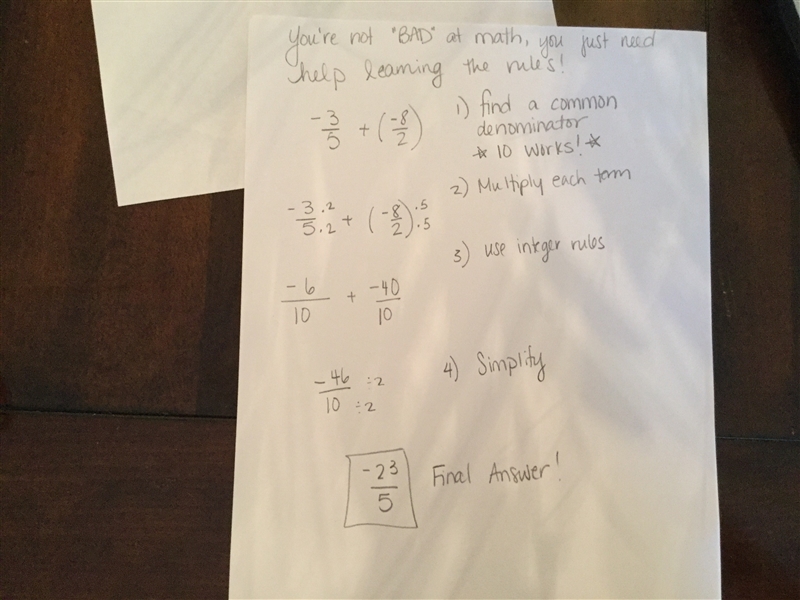 You're not "BAD" at math, you just need
help learning the rules!
-3/5 + (-8/2)
1) find a common
denominator
* 10 works! *
2) Multiply each term
-3·2/5·2 + (-8/2)·5/·5
3) use integer rules
-6/10 + -40/10
4) Simplify
-46/10 ÷2/÷2
-23/5 Final Answer!